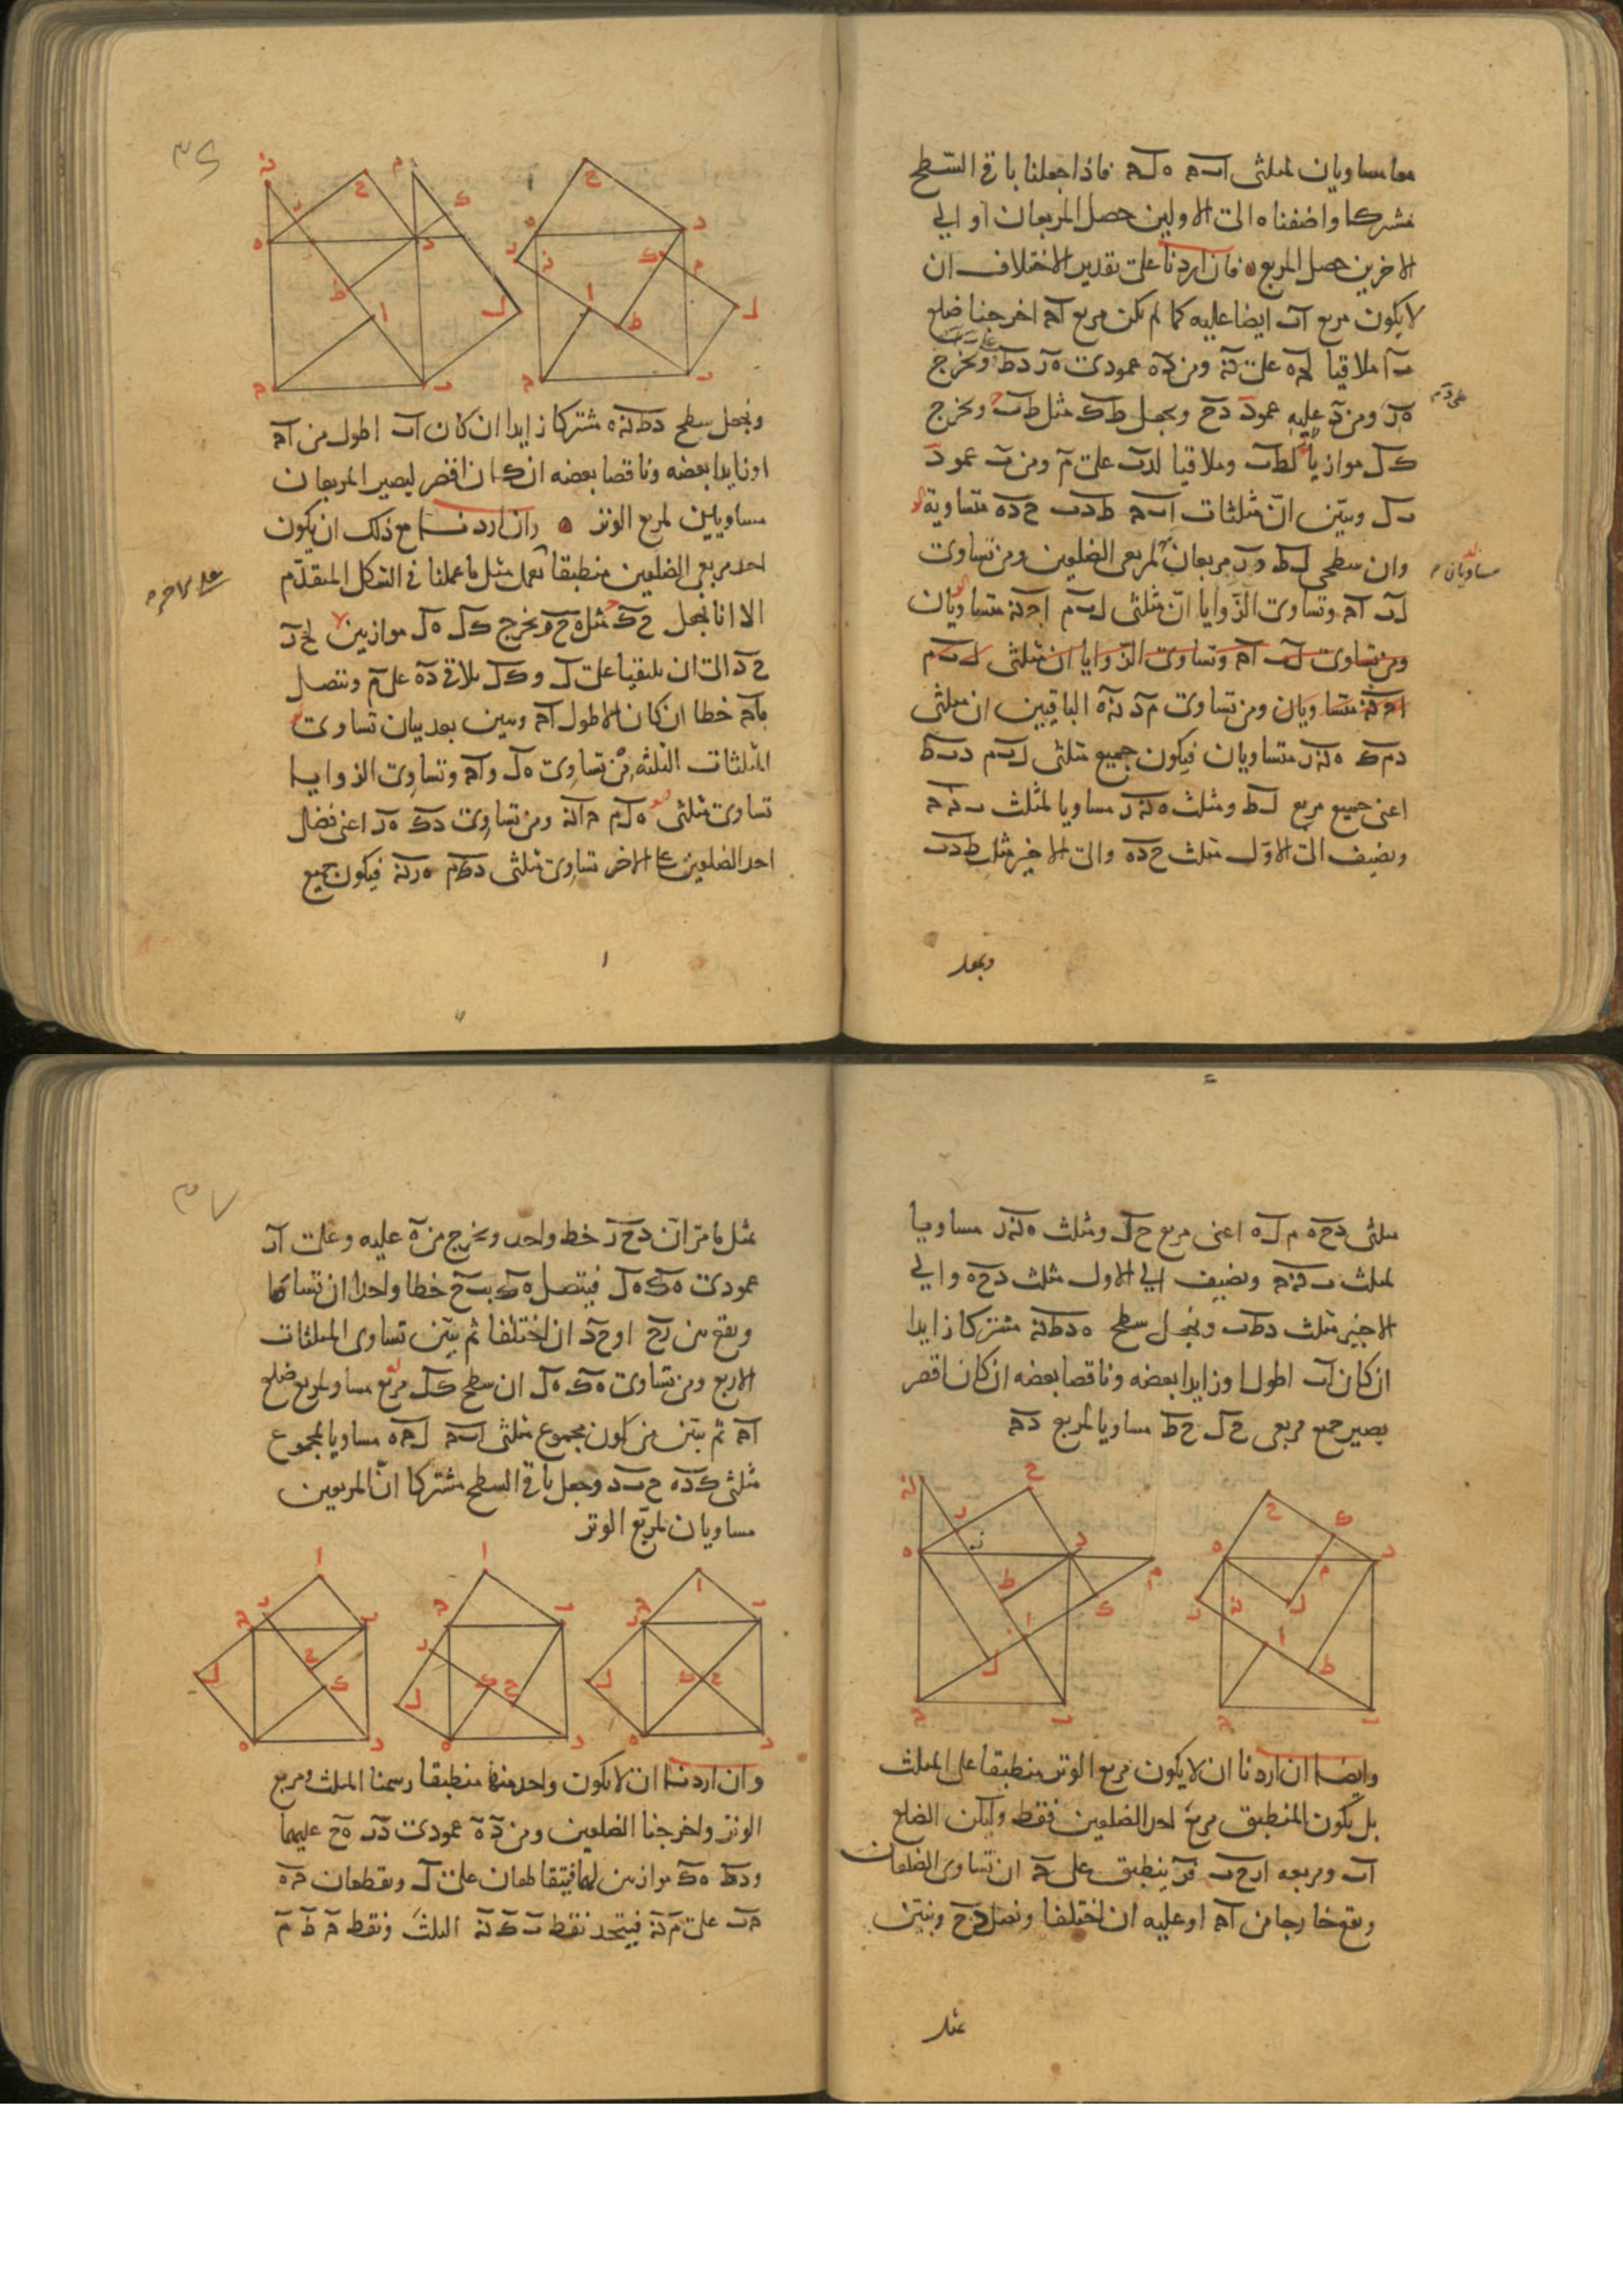 معا مساويان لمثلثى ا ب ح ه ل ح فاذا جعلنا باقى السطح
مشتركا واضفناه الى الاولين حصل المربعان او الى
الاخرين حصل المربع فان اردنا على تقدير الاختلاف ان
لا يكون مربع ا ب ايضا عليه كما لم يكن مربع ا ح اخرجنا ضلع
ب ا ملاقيا ل ح ه على ن ومن د ه عمودى ه ر د ط ونخرج
ه ر ومن د عليه عمود د ح ونجعل ط ك مثل ط ب ونخرج
ك ل موازيا ل ط ب وملاقيا ل د ب على م ومن ب عمود
ب ل ونبين ان مثلثات ا ب ح ط د ب ح د ه متساوية
وان سطحى ل ط د ر مربعان لمربعى الضلعين ومن تساوى
ل ب ا ح وتساوى الزوايا ان مثلثى ل ب م ا ح ن متساويان
ومن تساوى ل ب ا ح وتساوى الزوايا ان مثلثى ل ب م
ا ح ن متساويان ومن تساوى م د ن ه الباقيين ان مثلثى
د م ك ه ن ر متساويان فيكون جميع مثلثى ل ب م د ب ط
اعنى جميع مربع ل ط ومثلث ه ن ر مساويا لمثلث ب ن ح
ونضيف الى الاول مثلث ح د ه والى الاخير مثلث ط د ب
ونجعل
مساويان
٣٤
ن
ر
ح
م
ك
ه
د
ط
ا
ل
ح
ب
ح
د
ه
ر
ن
ك
م
ل
ا
ط
ح
ب
ونجعل سطح د ط ن ه مشتركا زايدا ان كان ا ب اطول من ا ح
او زايدا بعضه وناقصا بعضه ان كان اقصر ليصير المربعان
مساويين لمربع الوتر وان اردنا مع ذلك ان يكون
احد مربعى الضلعين منطبقا نعمل مثل ما عملنا فى الشكل المتقدم
الا انا نجعل ح ك مثل ه ح ونخرج ك ل ه ل موازيين ل ح ر
ح د الى ان يلتقيا على ل و ك ل يلاقى د ه على م ويتصل
ب ا ح خطا ان كان الاطول ا ح ونبين بعد بيان تساوى
المثلثات الثلثه من تساوى ه ل و ا ح وتساوى الزوايا
تساوى مثلثى ه ل م ح ا ن ومن تساوى د ك ه ر اعنى فضل
احد الضلعين على الاخر تساوى مثلثى د ك م ه ر ن فيكون جميع
مثلثى د ح ه م ل ه اعنى مربع ح ل ومثلث ه ن ر مساويا
لمثلث ب ن ح ونضيف الى الاول مثلث د ح ه والى
الاخير مثلث د ط ب ونجعل سطح ه د ط ن مشتركا زايدا
ان كان ا ب اطول او زايدا بعضه وناقصا بعضه ان كان اقصر
يصير جميع مربعى ح ل ح ط مساويا لمربع د ح
ن
ر
ح
ه
د
م
ط
ك
ا
ل
ح
ب
ح
ك
ه
د
م
ر
ن
ل
ا
ط
ح
ب
وايضا ان اردنا ان لا يكون مربع الوتر منطبقا على المثلث
بل يكون المنطبق مربع احد الضلعين فقط وليكن الضلع
ا ب ومربعه ا ر ح ب فر ينطبق على ح ان تساوى الضلعان
ويقع خارجا من ا ح او عليه ان اختلفا ونصل د ح ونبين
مثل
٣٧
مثل ما مر ان د ح ر خط واحد ونخرج من ه عليه وعلى ا ر
عمودى ه ك ه ل فيتصل ه ك ب ح خطا واحدا ان تساويا
ويقع بين ر ح او ح د ان اختلفا ثم نبين تساوى المثلثات
الاربع ومن تساوى ه ك ه ل ان سطح ك ل مربع مساو لمربع ضلع
ا ح ثم نبين من كون مجموع مثلثى ا ب ح ل ح ه مساويا لمجموع
مثلثى ك د ه ح ب د وجعل باقى السطح مشتركا ان المربعين
مساويان لمربع الوتر
ا
ر
ح
ب
ل
ح
ك
ه
د
ا
ح
ب
ر
ك
ح
ل
ه
د
ا
ر
ح
ب
ل
ك
ح
ه
د
وان اردنا ان لا يكون واحد منها منطبقا رسمنا المثلث ومربع
الوتر واخرجنا الضلعين ومن د ه عمودى د ر ه ح عليهما
و د ط ه ك موازيين لهما فيتقاطعان على ل ويقطعان ح ه
ح ب على م ن فيتحد نقط ب ك ن الثلث ونقط ح ط م